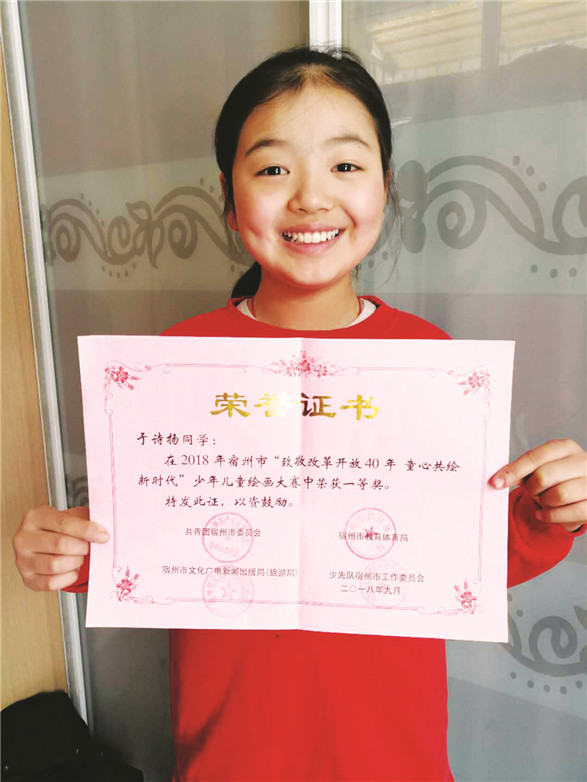 荣誉证书
于诗扬同学：
在2018年宿州市“致敬改革开放40年 童心共绘
新时代”少年儿童绘画大赛中荣获一等奖。
特发此证，以资鼓励。
共青团宿州市委员会 宿州市教育体育局
宿州市文化广电新闻出版局(旅游局) 少先队宿州市工作委员会
二〇一八年九月